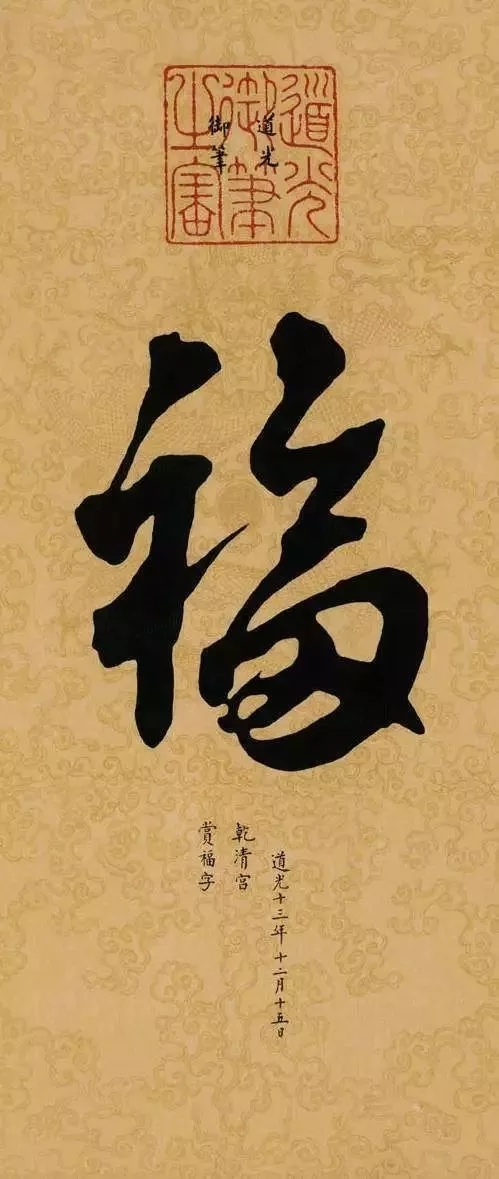 道光
御筆
之寶
道光
御筆
福
道光十三年十二月十五日
乾清宮
賞福字